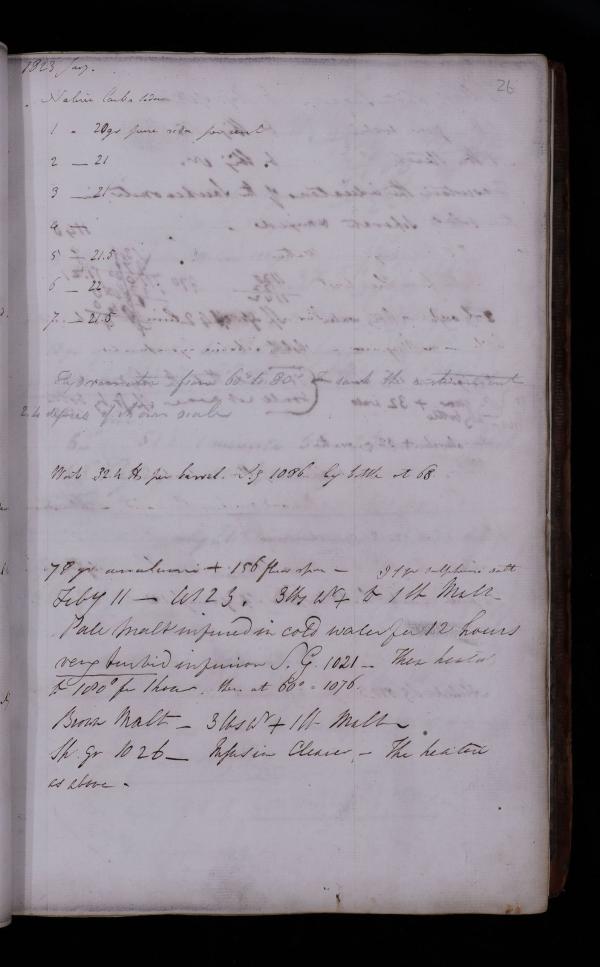 1823 Jany.
26
Native Carb soda
1 - 20 grs pure soda per cent
2 - 21
3 - 21
4
5 - 21.5
6 - 22
7 - 21.5
from 60° to 80° sank the instrument
2.4 degrees of its own scale
Wort 32.4 lbs per barrel. S.G 1086 by bottle at 68
78 gr + 156 fluor spar -
Feby 11 - 1823. 3 lbs Wr + to 1 lb Malt
Pale Malt infused in cold water for 12 hours
very turbid infusion S.G. 1021 - Then heated
to 180° for 1 hour, then at 60° = 1076.
Brown Malt - 3 lbs Wr + 1 lb Malt
Sp. gr 1026 - Infusion Clearer, - Then heated
as above -